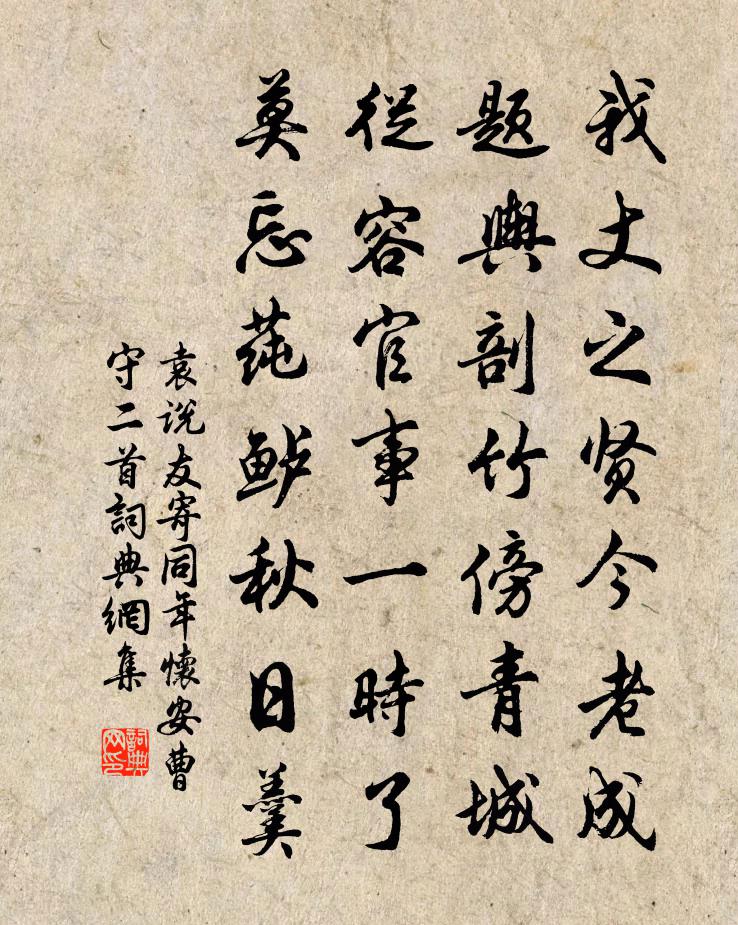 我丈之贤今老成
题輿剖竹傍青城
從容官事一時了
莫忘莼鲈秋日羹
袁说友寄同年懷安曹
守二首詞典網集
詞典网印